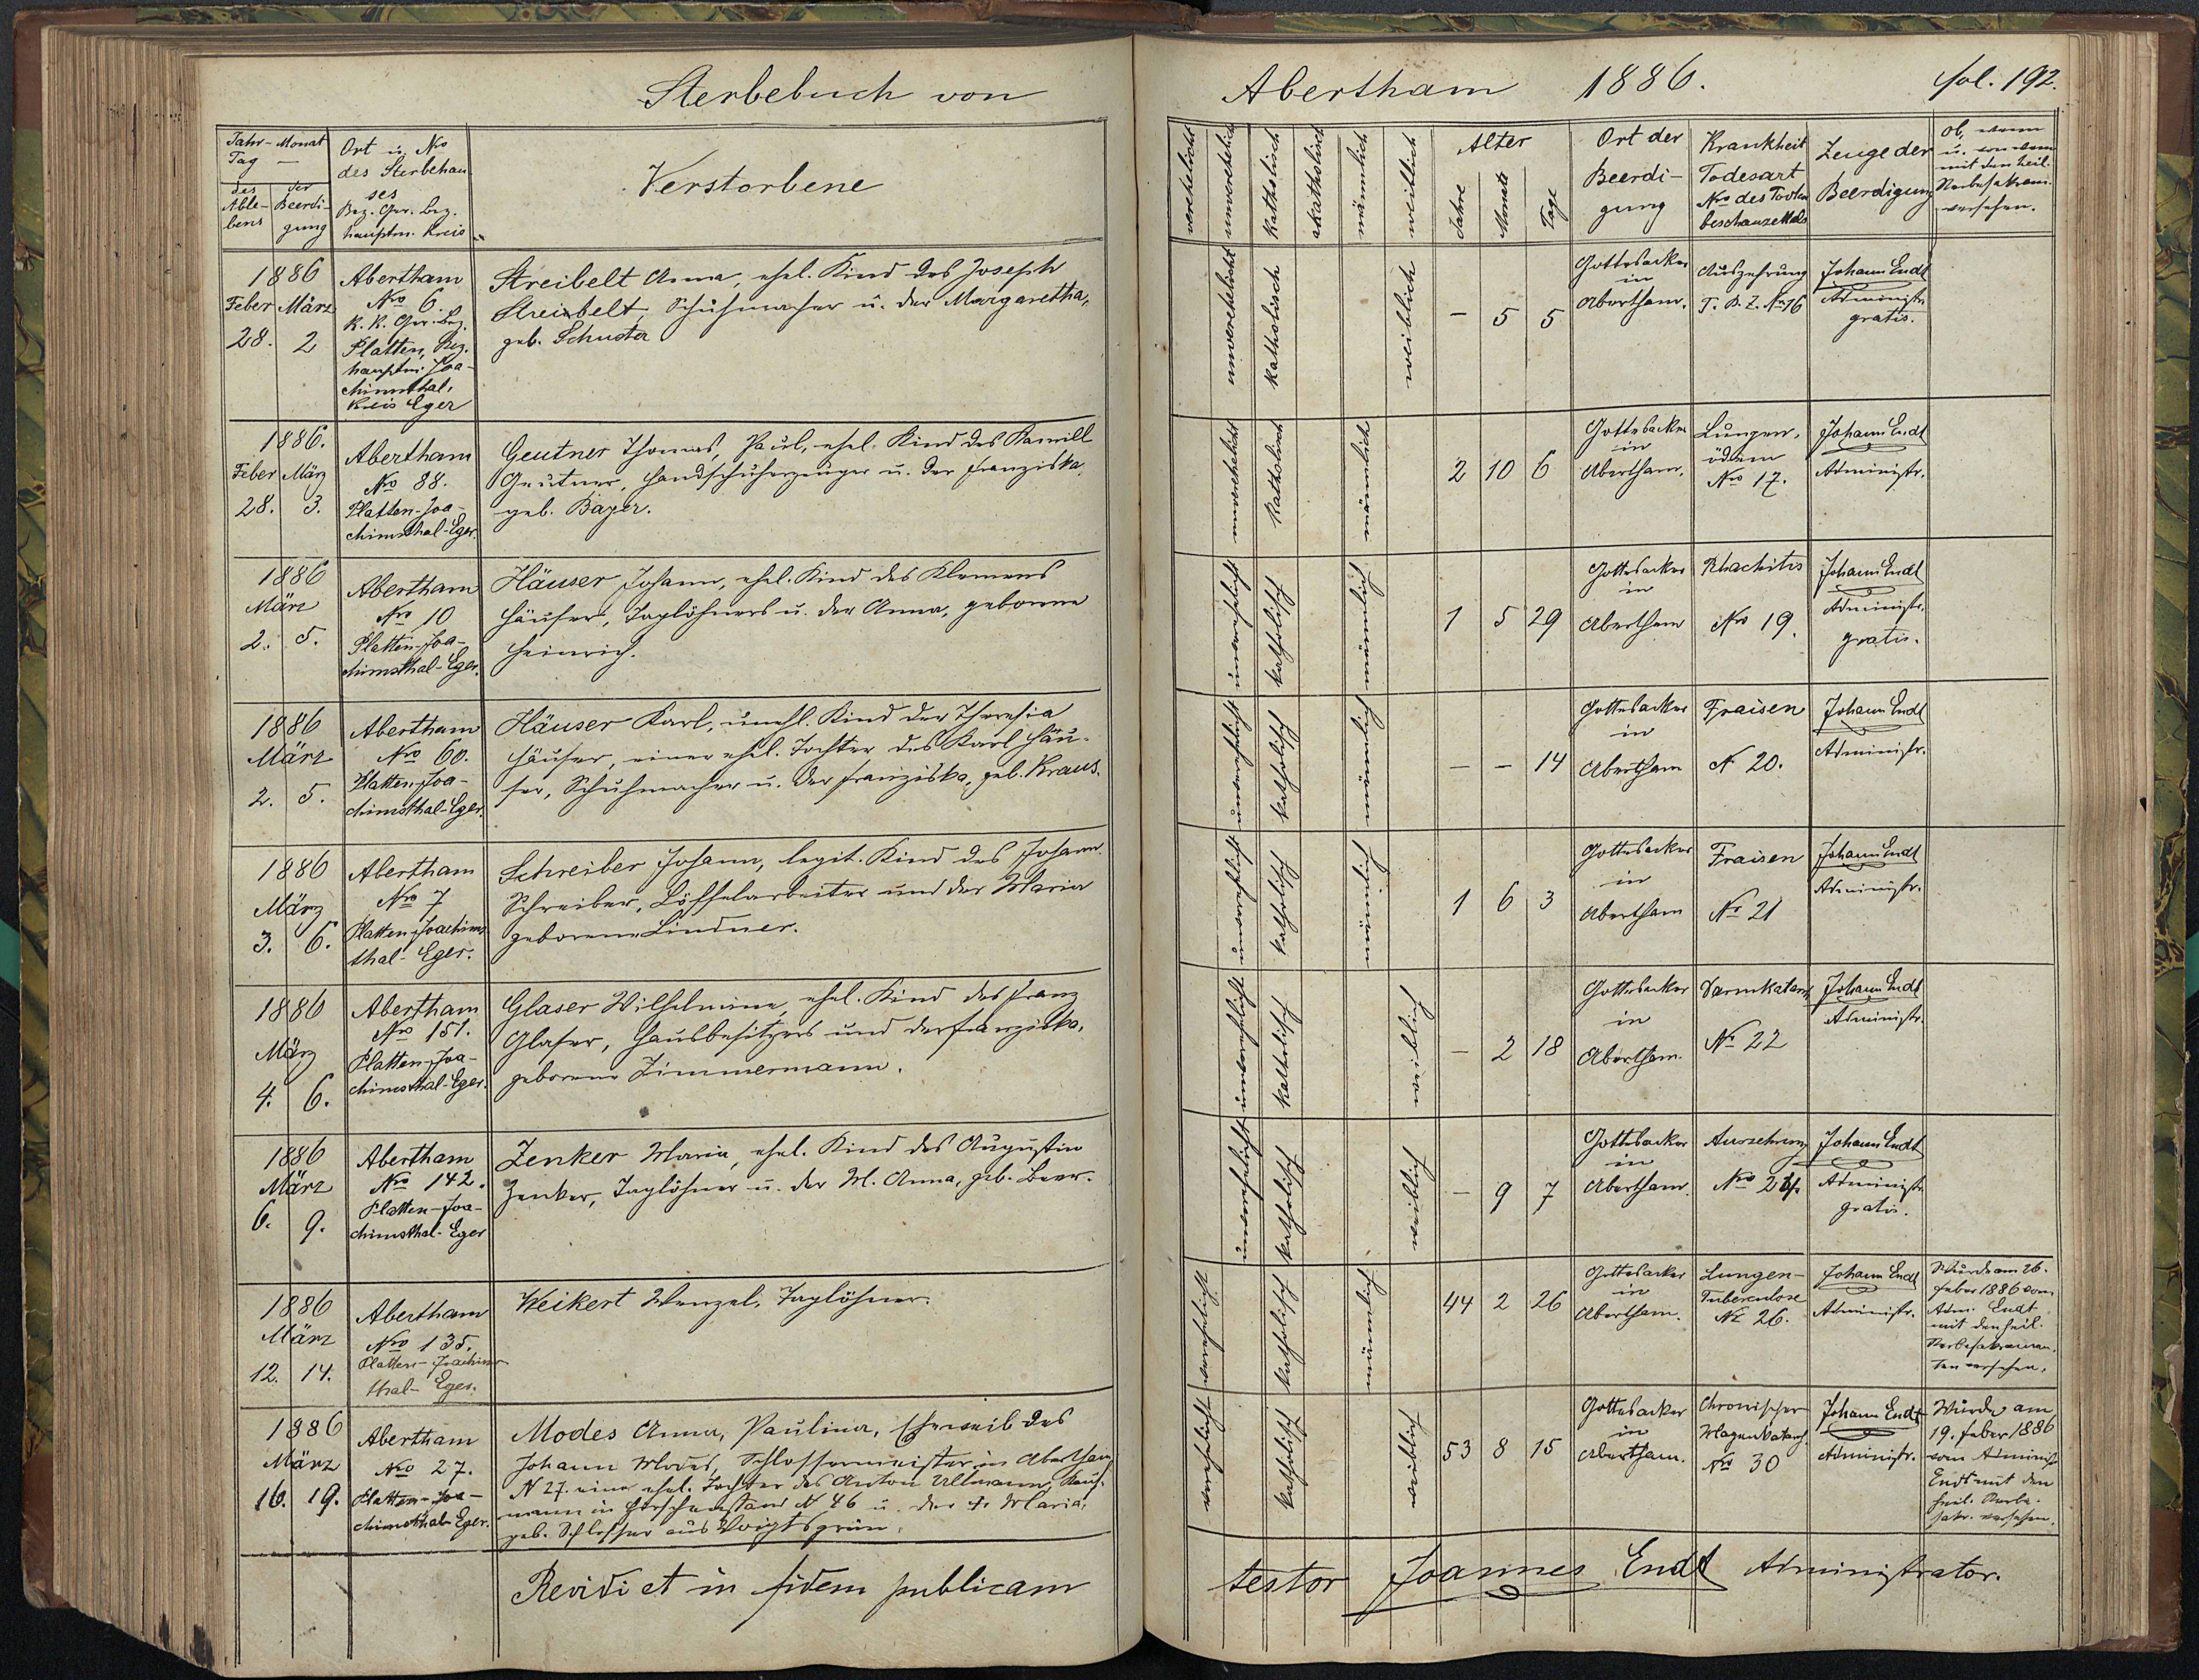 Sterbebuch von
Abertham 1886.
fol. 192.
Jahr - Monat
Tag —
des Able-
bens
der
Beerdi-
gung
Ort u. Nro
des Sterbehau
ses
Bez. Ger. Bez.
hauptm. Kreis
Verstorbene
verehelicht
unverehelicht
katholisch
akatholisch
männlich
weiblich
Alter
Jahre
Monate
Tage
Ort der
Beerdi-
gung
Krankheit
Todesart
Nro des Todten
beschauzettels
Zeuge der
Beerdigung
ob, wann
u. von wem
mit den heil.
Sterbesakram.
versehen.
1886
Feber März
28. 2
Abertham
Nro 6
K. K. Ger. Bez.
Platten, Bez.
hauptm. Joa-
chimsthal,
Kreis Eger
Streibelt Anna, ehel. Kind des Joseph
Streibelt, Schuhmacher u. der Margaretha,
geb. Schuster
unverehelicht
katholisch
weiblich
— 5 5
Gottesacker
in
Abertham.
Auszehrung
T. B. Z. No 16
Johann Endt
Administr.
gratis.
1886.
Feber März
28. 3.
Abertham
Nro 88.
Platten-Joa-
chimsthal-Eger.
Geutner Thomas, Paul, ehel. Kind des Kamill
Geutner, Handschuherzeuger u. der Franziska
geb. Bayer.
unverehelicht
katholisch
männlich
2 10 6
Gottesacker
in
Abertham.
Lungen-
ödem
Nro 17.
Johann Endt
Administr.
1886
März
2. 5.
Abertham
Nro 10
Platten-Joa-
chimsthal-Eger.
Häuser Johann, ehel. Kind des Klemens
Häuser, Taglöhners u. der Anna, geborene
Heinrich.
unverehelicht
katholisch
männlich
1 5 29
Gottesacker
in
Abertham
Rhachitis
Nro 19.
Johann Endt
Administr.
gratis.
1886
März
2. 5.
Abertham
Nro 60.
Platten-Joa-
chimsthal-Eger.
Häuser Karl, unehl. Kind der Theresia
Häuser, einer ehel. Tochter des Karl Häu-
ser, Schuhmacher u. der Franziska, geb. Kraus.
unverehelicht
katholisch
männlich
— — 14
Gottesacker
in
Abertham
Fraisen
N 20.
Johann Endt
Administr.
1886
März
3. 6.
Abertham
Nro 7
Platten-Joachims
thal-Eger.
Schreiber Johann, legit. Kind des Johann
Schreiber, Löffelarbeiter und der Maria
geborene Lindner.
unverehelicht
katholisch
männlich
1 6 3
Gottesacker
in
Abertham
Fraisen
No 21
Johann Endt
Administr.
1886
März
4. 6.
Abertham
Nro 151.
Platten-Joa-
chimsthal-Eger.
Glaser Wilhelmine, ehel. Kind des Franz
Glaser, Hausbesitzers und der Franziska,
geborene Zimmermann.
unverehelicht
katholisch
weiblich
— 2 18
Gottesacker
in
Abertham.
Darmkatarrh
No 22
Johann Endt
Administr.
1886
März
6. 9.
Abertham
Nro 142.
Platten-Joa-
chimsthal-Eger
Zenker Maria, ehel. Kind des Augustin
Zenker, Taglöhner u. der M. Anna, geb. Beer.
unverehelicht
katholisch
weiblich
— 9 7
Gottesacker
in
Abertham.
Auszehrung
Nro 24.
Johann Endt
Administr.
gratis.
1886
März
12. 14.
Abertham
Nro 135.
Platten-Joachims
thal-Eger.
Weikert Wenzel, Taglöhner.
verehelicht
katholisch
männlich
44 2 26
Gottesacker
in
Abertham.
Lungen-
Tuberculose
No 26.
Johann Endt
Administr.
Wurde am 26.
Feber 1886 vom
Adm. Endt
mit den heil.
Sterbesakramen-
ten versehen.
1886
März
16. 19.
Abertham
Nro 27.
Platten-Joa-
chimsthal-Eger.
Modes Anna, Paulina, Eheweib des
Johann Modes, Schlossermeister in Abertham
N 27. eine ehel. Tochter des Anton Ullmann, Kauf-
mann in Hirschenstand N 46 u. der Maria,
geb. Schlosser aus Voigtsgrün.
verehelicht
katholisch
weiblich
53 8 15
Gottesacker
in
Abertham.
Chronischer
Magenkatarrh.
Nro 30
Johann Endt
Administr.
Wurde am
19. Feber 1886
vom Administr.
Endt mit den
heil. Sterbe-
sakr. versehen.
Revidi et in fidem publicam
testor Joannes Endt Administrator.